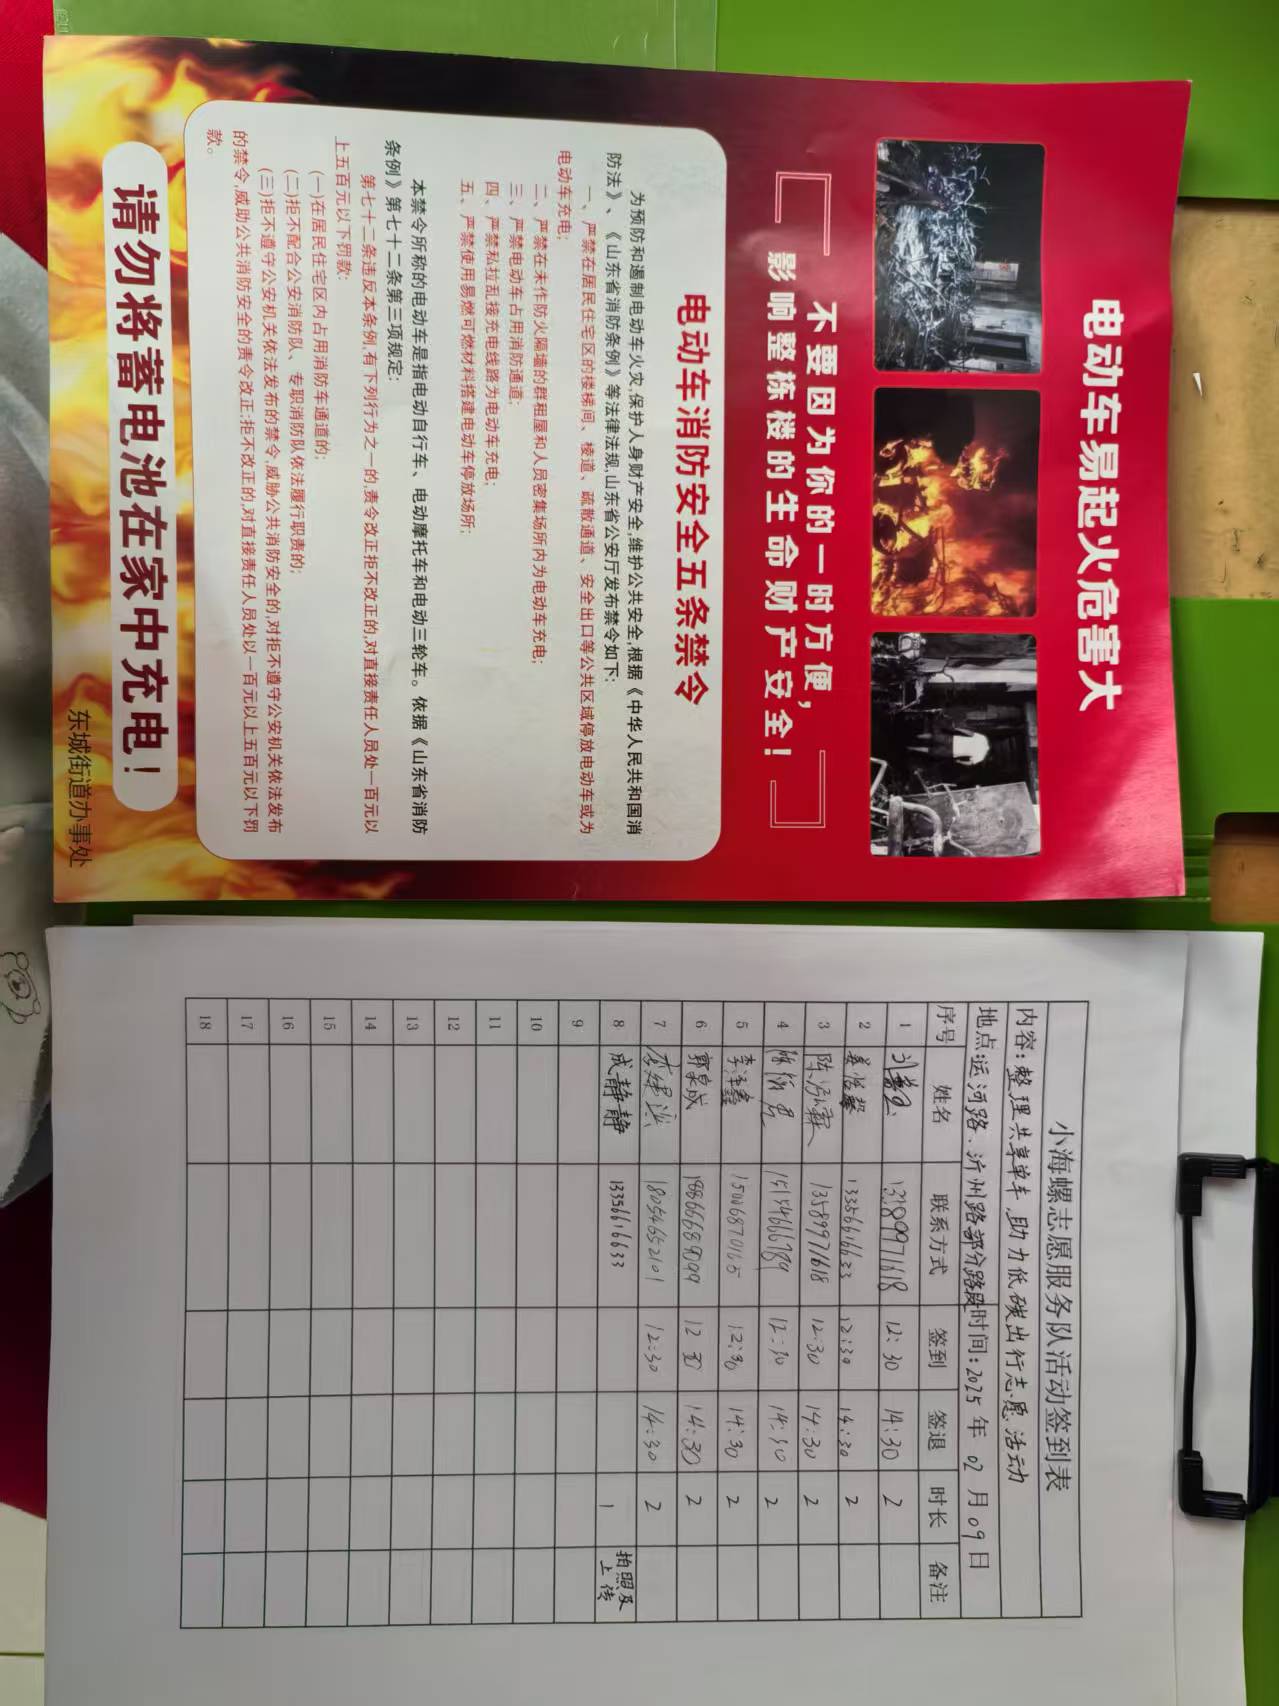 电动车易起火危害大
不要因为你的一时方便，
影响整栋楼的生命财产安全！
电动车消防安全五条禁令
为预防和遏制电动车火灾,保护人身财产安全,维护公共安全,根据《中华人民共和国消
防法》、《山东省消防条例》等法律法规,山东省公安厅发布禁令如下:
一、严禁在居民住宅区的楼梯间、楼道、疏散通道、安全出口等公共区域停放电动车或为
电动车充电;
二、严禁在未作防火隔墙的群租屋和人员密集场所内为电动车充电;
三、严禁电动车占用消防通道;
四、严禁私拉乱接充电线路为电动车充电;
五、严禁使用易燃可燃材料搭建电动车停放场所;
本禁令所称的电动车是指电动自行车、电动摩托车和电动三轮车。依据《山东省消防
条例》第七十二条第三项规定:
第七十二条违反本条例,有下列行为之一的责令改正拒不改正的,对直接责任人员处一百元以
上五百元以下罚款:
(一)在居民住宅区内占用消防车通道的;
(二)拒不配合公安消防队、专职消防队依法履行职责的;
(三)拒不遵守公安机关依法发布的禁令,威胁公共消防安全的,对拒不遵守公安机关依法发布
的禁令,威助公共消防安全的责令改正;拒不改正的,对直接责任人员处以一百元以上五百元以下罚
款。
请勿将蓄电池在家中充电！
东城街道办事处
小海螺志愿服务队活动签到表
内容:整理共享单车,助力低碳出行志愿活动
地点:运河路、沂州路部分路段 时间:2025年02月09日
序号 姓名 联系方式 签到 签退 时长 备注
1 12:30 14:30 2
2 13356616633 12:30 14:30 2
3 13589971618 12:30 14:30 2
4 12:30 14:30 2
5 李泽鑫 15006870165 12:30 14:30 2
6 郭泉成 12 30 14:30 2
7 18054652101 12:30 14:30 2
8 成静静 13356616633 1 拍照及上传
9
10
11
12
13
14
15
16
17
18